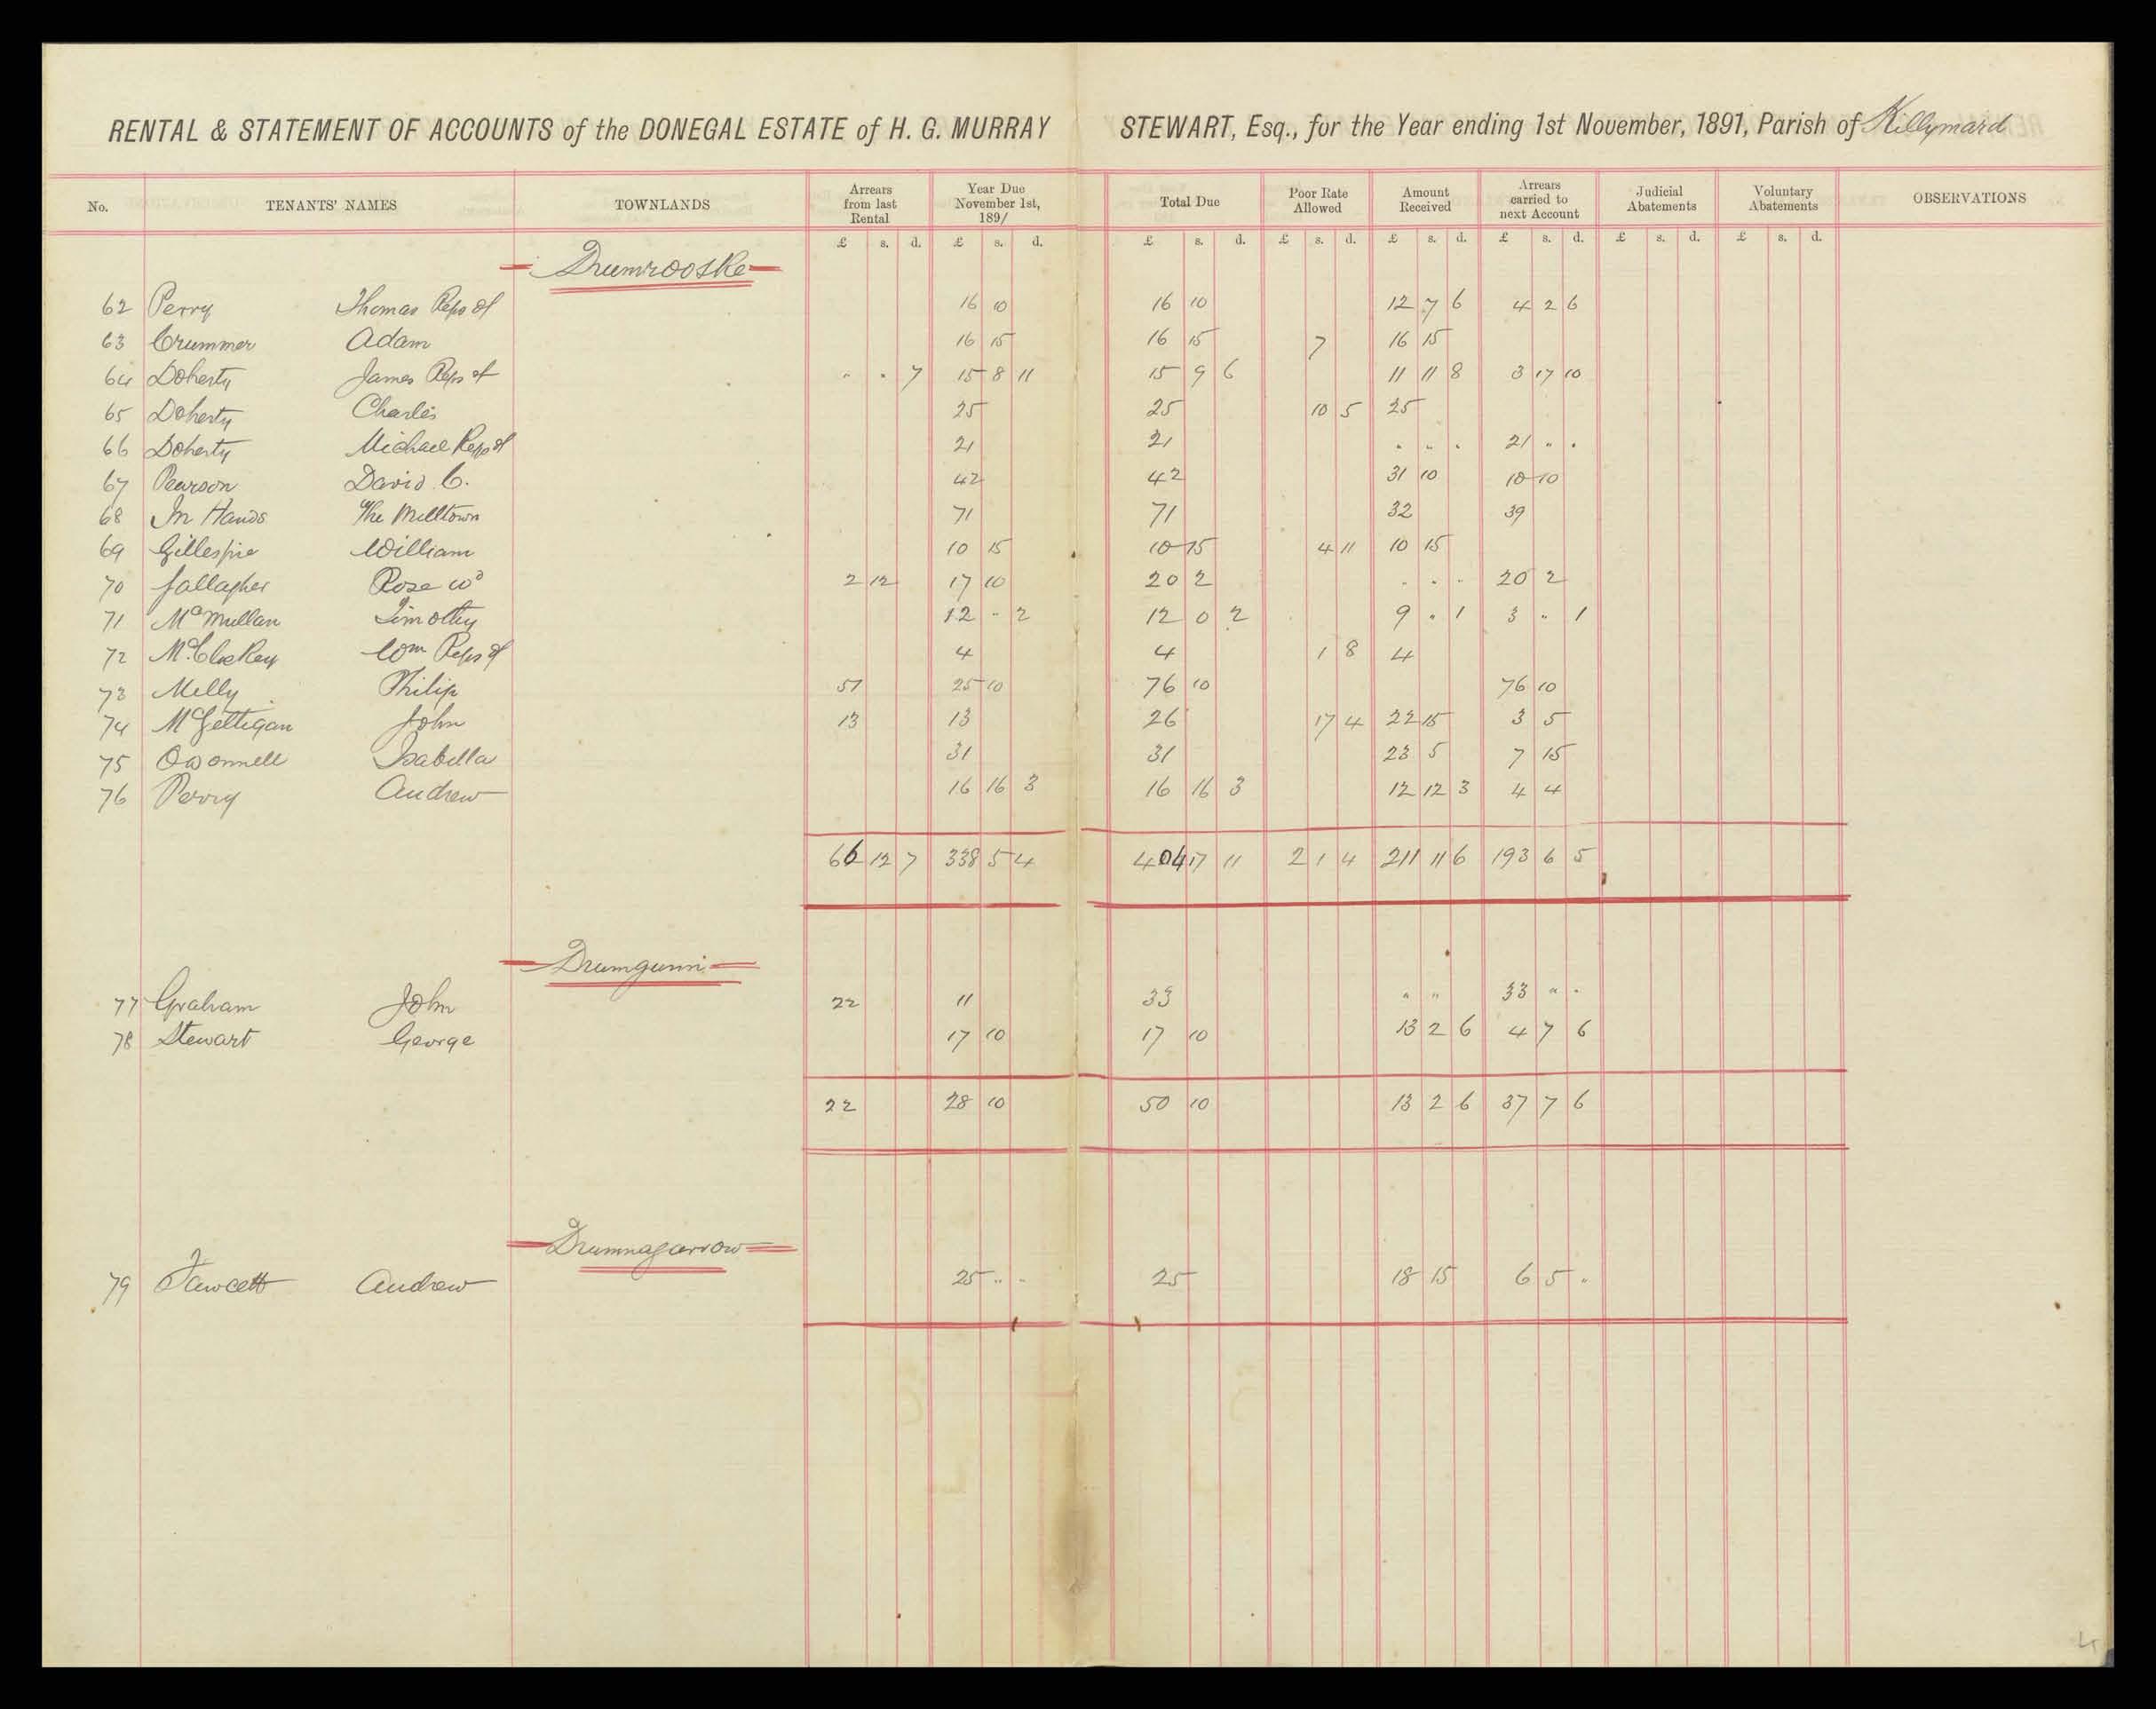 RENTAL & STATEMENT OF ACCOUNTS of the DONEGAL ESTATE of H. G. MURRAY STEWART, Esq., for the Year ending 1st November, 1891, Parish of Killymard
No. TENANTS' NAMES TOWNLANDS Arrears from last Rental Year Due November 1st, 1891 Total Due Poor Rate Allowed Amount Received Arrears carried to next Account Judicial Abatements Voluntary Abatements OBSERVATIONS
£ s. d. £ s. d. £ s. d. £ s. d. £ s. d. £ s. d. £ s. d. £ s. d.
Drumrooske
62 Perry Thomas Reps of 16 10 16 10 12 7 6 4 2 6
63 Crummer Adam 16 15 16 15 7 16 15
64 Doherty James Reps of " " 7 15 8 11 15 9 6 11 11 8 3 17 10
65 Doherty Charles 25 25 10 5 25
66 Doherty Michael Reps of 21 21 " " " 21 " "
67 Pearson David C. 42 42 31 10 10 10
68 In Hands The Milltown 71 71 32 39
69 Gillespie William 10 15 10 15 4 11 10 15
70 Gallagher Rose wd 2 12 17 10 20 2 " " " 20 2
71 McMullan Timothy 12 " 2 12 0 2 9 " 1 3 " 1
72 McCloskey Wm Reps of 4 4 1 8 4
73 Melly Philip 51 25 10 76 10 76 10
74 McGettigan John 13 13 26 17 4 22 15 3 5
75 O'Donnell Isabella 31 31 23 5 7 15
76 Perry Andrew 16 16 3 16 16 3 12 12 3 4 4
66 12 7 338 5 4 404 17 11 2 1 4 211 11 6 193 6 5
Drumgunni
77 Graham John 22 11 33 " " 33 " "
78 Stewart George 17 10 17 10 13 2 6 4 7 6
22 28 10 50 10 13 2 6 37 7 6
Drumnagarrow
79 Fawcett Andrew 25 " " 25 18 15 6 5 "
4